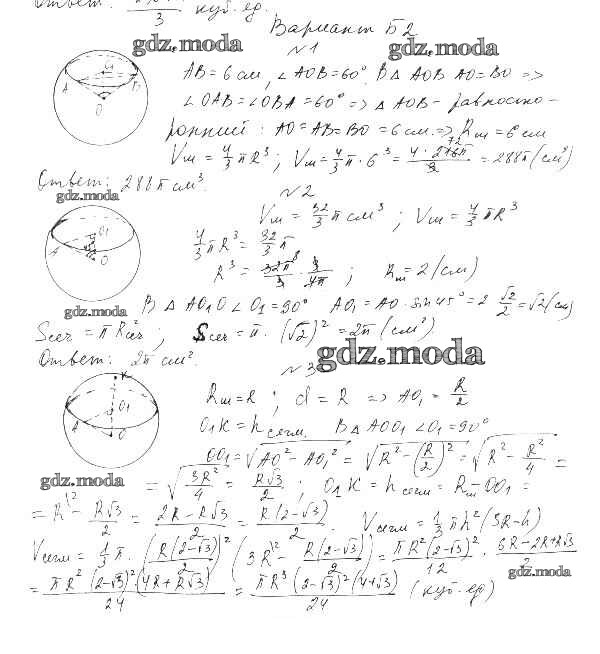 Ответ: 3 куб. ед.
Вариант Б2
gdz.moda gdz.moda
№1
AB = 6 см, ∠AOB = 60°. В Δ AOB AO = BO =>
∠OAB = ∠OBA = 60° => Δ AOB - равносто-
ронний : AO = AB = BO = 6 см. => Rш = 6 см
Vш = 4/3 πR³ ; Vш = 4/3 π · 6³ = 4 · 216π 72 / 3 = 288π (см³)
Ответ: 288π см³.
gdz.moda
№2
Vш = 32/3 π см³ ; Vш = 4/3 πR³
4/3 πR³ = 32/3 π
R³ = 32π 8 / 3 · 3/4π ; Rш = 2 (см)
gdz.moda
В Δ AO₁O ∠O₁ = 90° AO₁ = AO · sin 45° = 2 √2/2 = √2 (см)
Sсеч = πR²сеч ; Sсеч = π · (√2)² = 2π (см²)
Ответ: 2π см².
gdz.moda
№3
Rш = R ; d = R => AO₁ = R/2
O₁K = hсегм. В Δ AOO₁ ∠O₁ = 90°
OO₁ = √(AO² - AO₁²) = √(R² - (R/2)²) = √(R² - R²/4) =
gdz.moda
= √(3R²/4) = R√3/2 ; O₁K = hсегм = Rш - OO₁ =
= R - R√3/2 = 2R - R√3 / 2 = R(2-√3)/2 . Vсегм = 1/3 πh² (3R-h)
Vсегм = 1/3 π · (R(2-√3)/2)² (3R - R(2-√3)/2) = πR²(2-√3)²/12 · 6R - 2R + R√3 / 2
gdz.moda
= πR²(2-√3)²(4R + R√3)/24 = πR³(2-√3)²(4+√3)/24 (куб. ед)